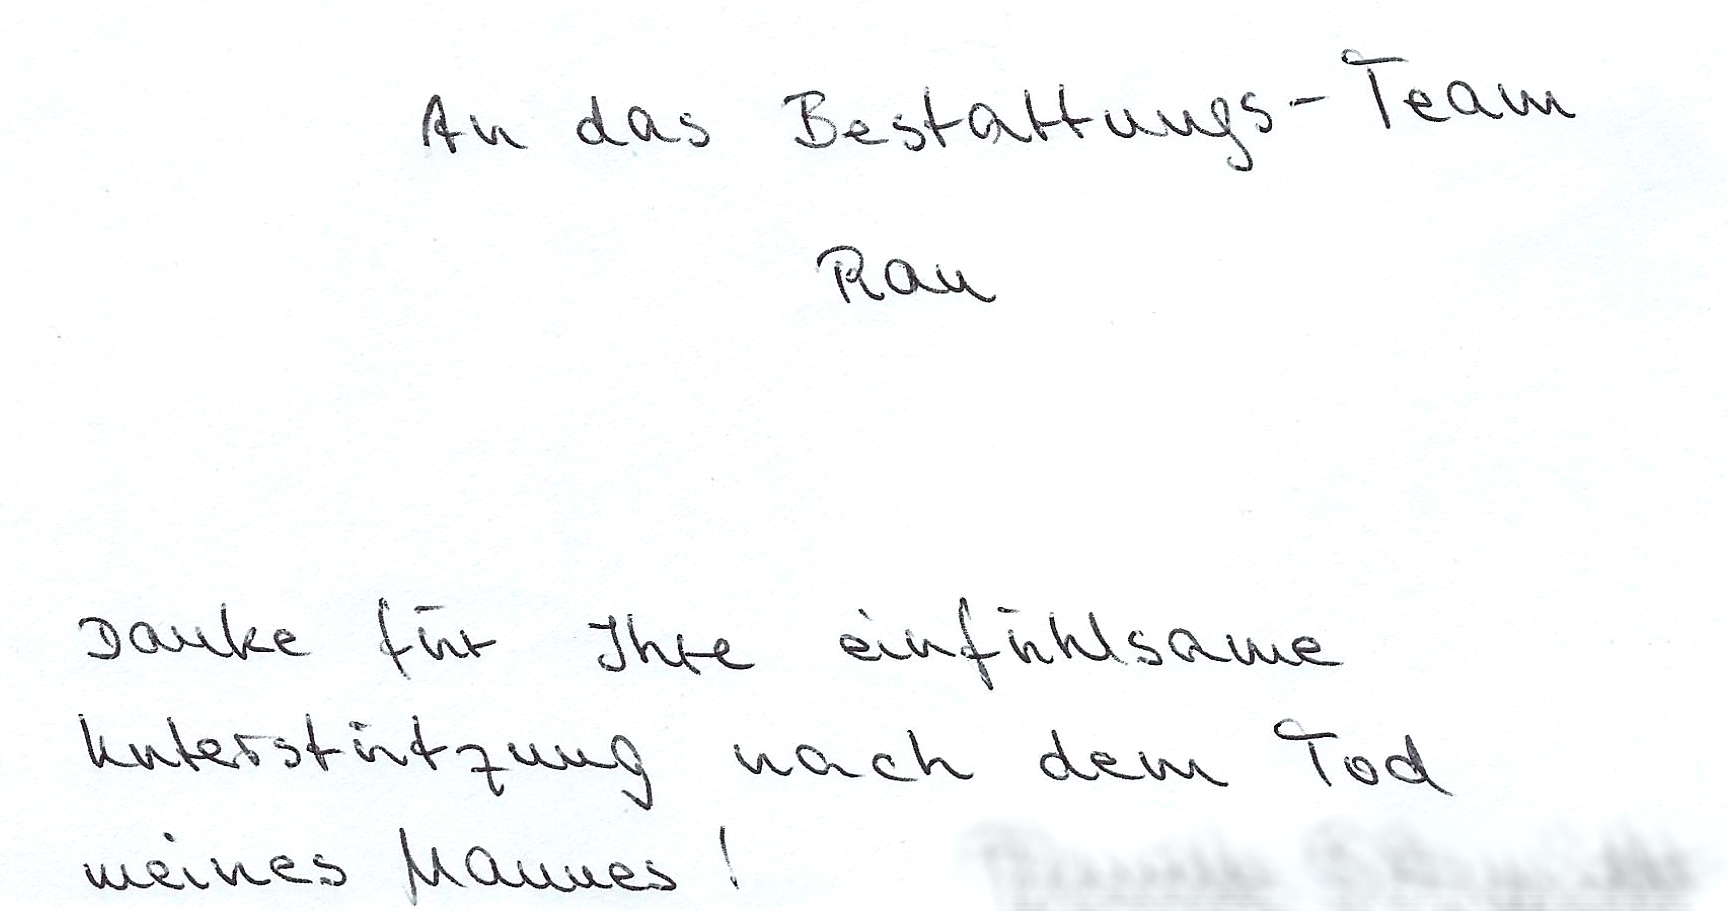 An das Bestattungs-Team
Rau
Danke für Ihre einfühlsame
Unterstützung nach dem Tod
meines Mannes!